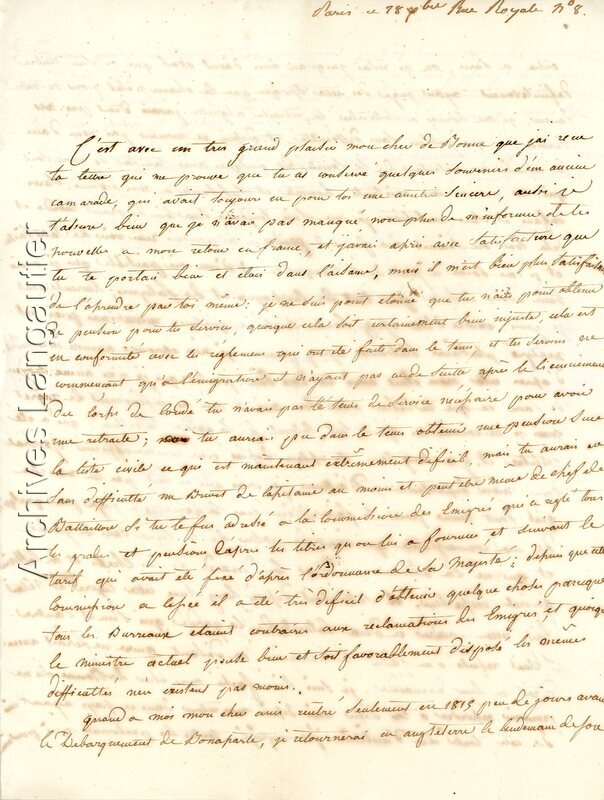 Paris ce 28 xbre Rue Royale No 8.
C'est avec un tres grand plaisir mon cher de Bonne que j'ai recue
ta lettre qui me prouve que tu as conservé quelques souvenirs d'un ancien
camarade, qui avait toujours eu pour toi une amitié sincere, aussi je
t'assure bien que je n'avais pas manqué non plus de m'informe de tes
nouvelles a mon retour en france, et j'avais apris avec satisfaction que
tu te portais bien et etais dans l'aisance, mais il m'est bien plus satisfaisan
de l'aprendre par toi même: je ne suis point etonné que tu n'aies point obtenu
de pension pour tes services, quoique cela soit certainement bien injuste, cela est
en conformité avec les reglemens qui ont été faits dans le tems, et tes services ne
commencant qu'a l'émigration et n'ayant pas eu de suite après le licenciement
du corps de Condé tu n'avais pas le tems de service nécessaire pour avoir
une retraite; tu aurais pu dans le tems obtenir une pension sur
la liste civile ce qui est maintenant extrêmement dificil, mais tu aurais eu
sans difficultée un Brevet de Capitaine au moins et peut etre même de chef de
Battaillon si tu te fus adressé a la Commission des Emigrés qui a reglé tous
les grades et pensions d'après les titres qu'on lui a fournies, et suivant le
tarif qui avait été fixé d'après l'ordonnance de Sa Majesté; depuis que cette
Commission a cessée il a été tres dificil d'obtenir quelque choses parceque
tous les Bureaux etaient contraires aux reclamations des Emigrés, et quoique
le ministre actuel pense bien et soit favorablement disposé les mêmes
difficultés n'en existent pas moins.
quand a moi mon cher ami rentré seulement en 1815 peu de jours avan
le Debarquement de Bonaparte, je retournerai en angleterre le lendemain de son
Archives Langautier